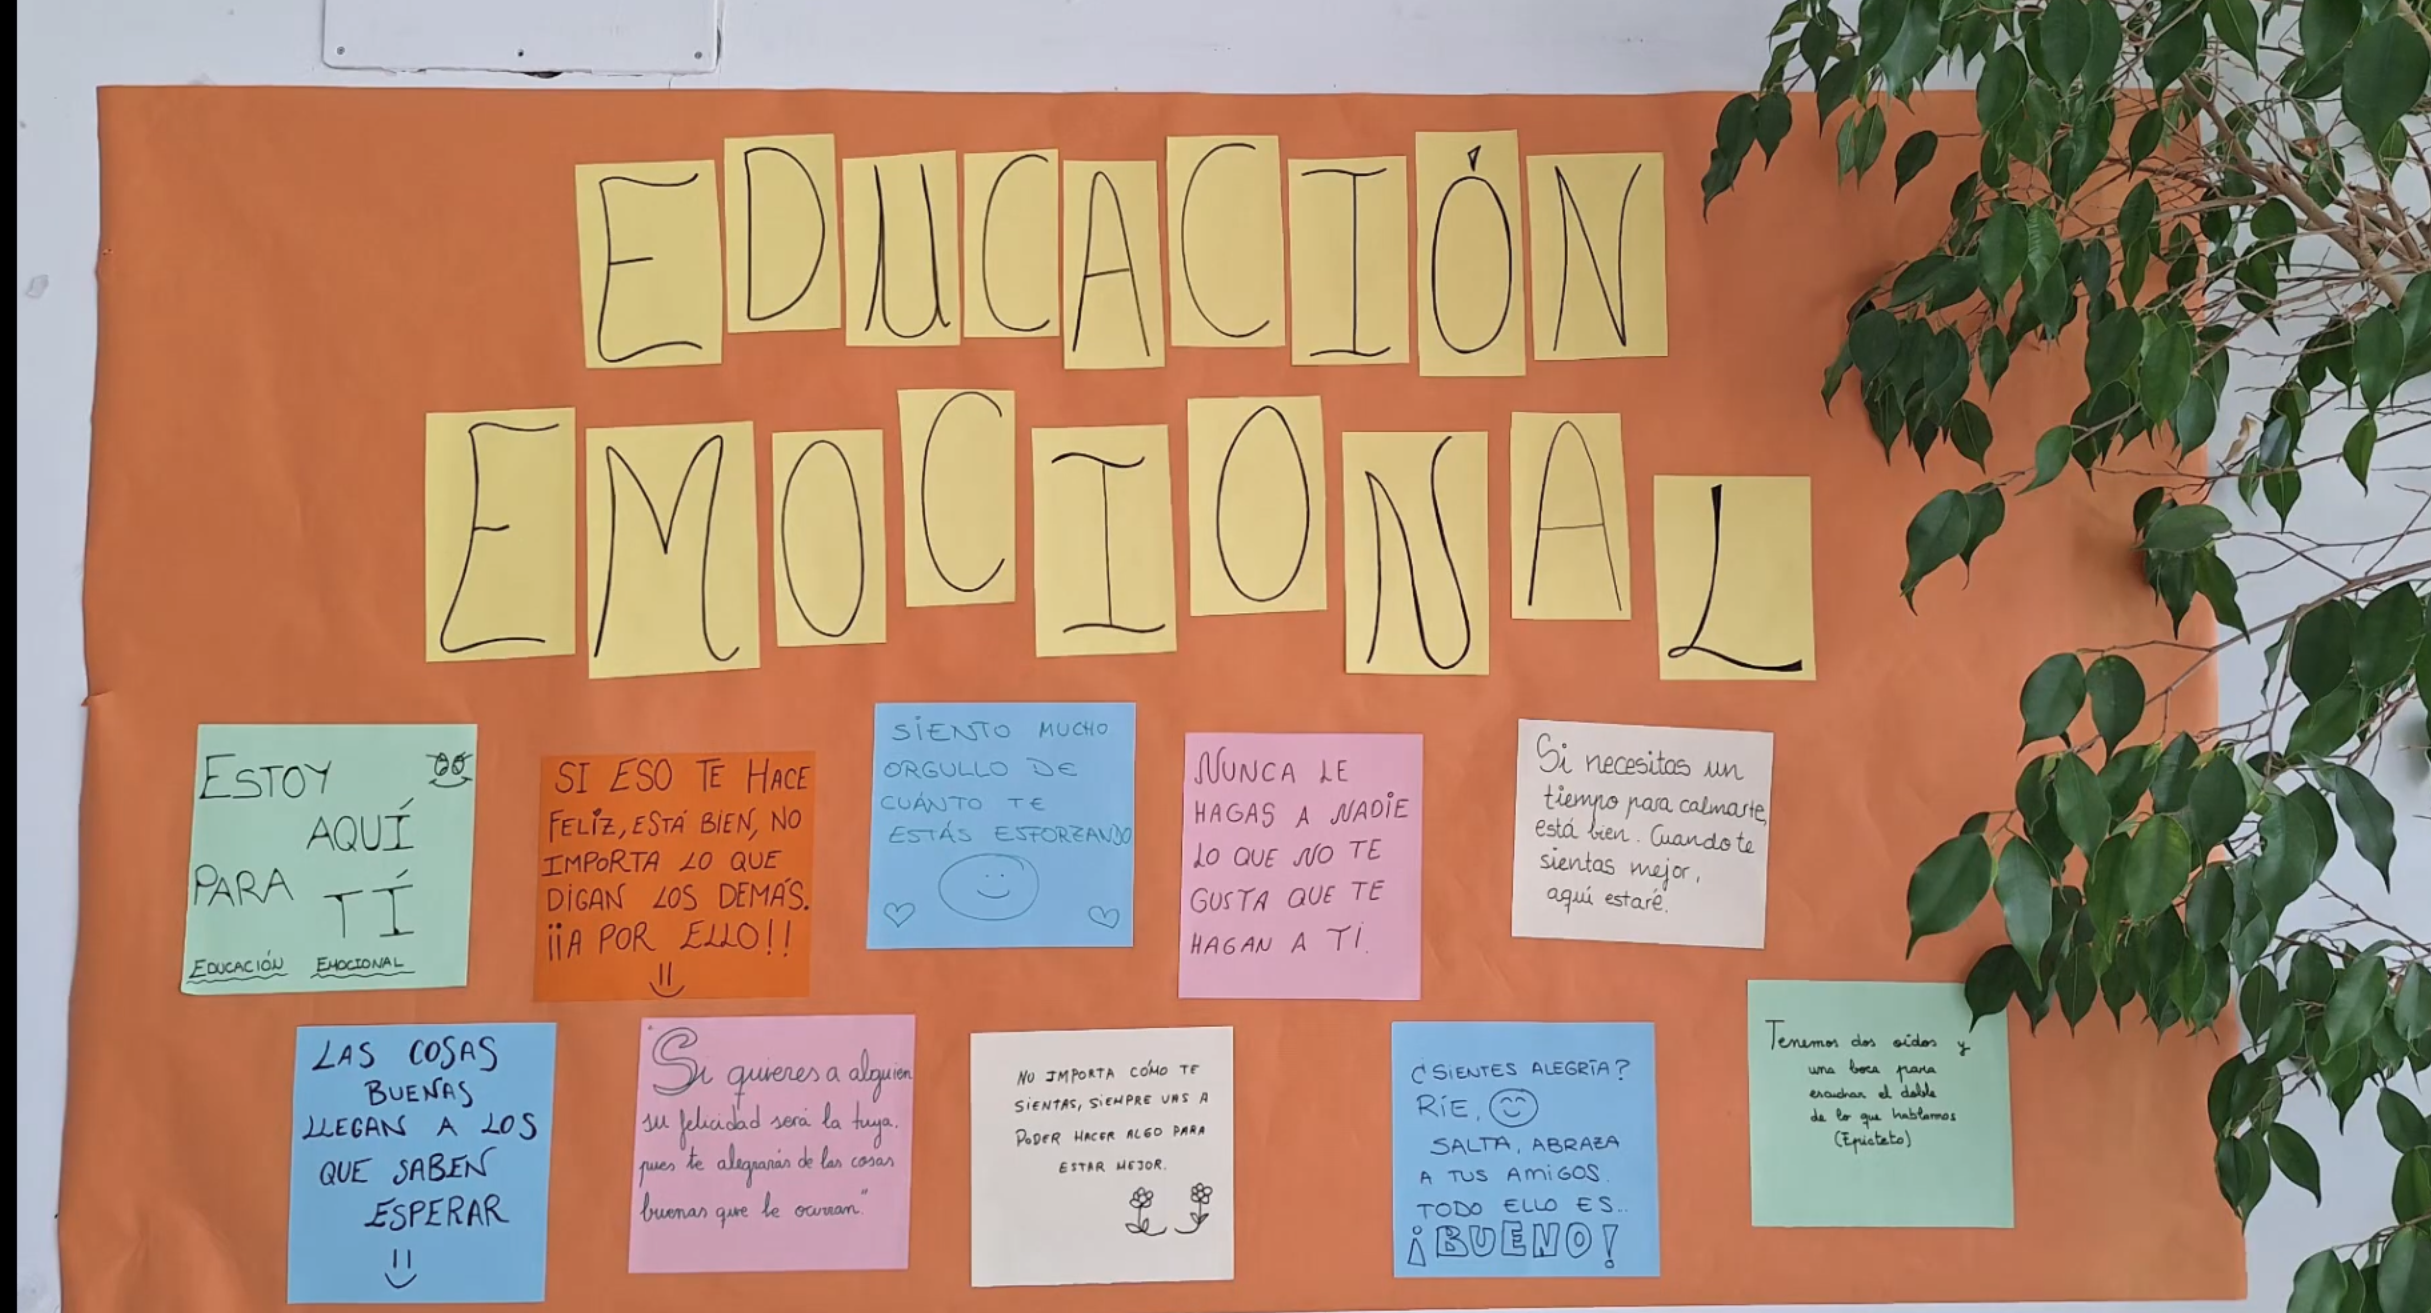 EDUCACIÓN
EMOCIONAL
ESTOY
AQUÍ
PARA
TÍ
EDUCACIÓN EMOCIONAL
SI ESO TE HACE
FELIZ, ESTÁ BIEN, NO
IMPORTA LO QUE
DIGAN LOS DEMÁS.
¡¡A POR ELLO!!
SIENTO MUCHO
ORGULLO DE
CUÁNTO TE
ESTÁS ESFORZANDO
NUNCA LE
HAGAS A NADIE
LO QUE NO TE
GUSTA QUE TE
HAGAN A TÍ.
Si necesitas un
tiempo para calmarte,
está bien. Cuando te
sientas mejor,
aquí estaré.
LAS COSAS
BUENAS
LLEGAN A LOS
QUE SABEN
ESPERAR
"Si quieres a alguien
su felicidad será la tuya.
pues te alegrarás de las cosas
buenas que le ocurran."
NO IMPORTA CÓMO TE
SIENTAS, SIEMPRE VAS A
PODER HACER ALGO PARA
ESTAR MEJOR.
¿SIENTES ALEGRÍA?
RÍE,
SALTA, ABRAZA
A TUS AMIGOS.
TODO ELLO ES...
¡BUENO!
Tenemos dos oídos y
una boca para
escuchar el doble
de lo que hablamos
(Epícteto)